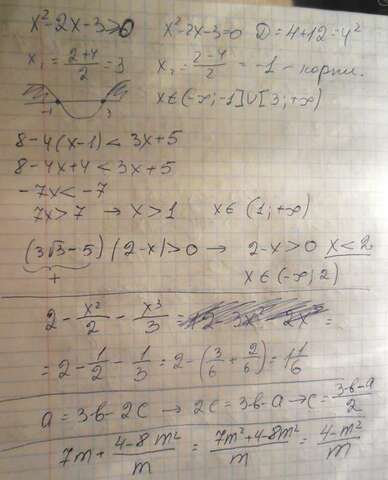 x²-2x-3≥0 x²-2x-3=0 D=4+12=4²
x₁=(2+4)/2=3 x₂=(2-4)/2=-1 - корни.
-1 3 x∈(-∞;-1]∪[3;+∞)
8-4(x-1)<3x+5
8-4x+4<3x+5
-7x<-7
7x>7 → x>1 x∈(1;+∞)
(3√3-5)(2-x)>0 → 2-x>0 x<2
+ x∈(-∞;2)
2-x²/2-x³/3=
=2-1/2-1/3=2-(3/6+2/6)=1 1/6
a=3b-2c → 2c=3b-a → c=(3b-a)/2
7m+(4-8m²)/m=(7m²+4-8m²)/m=(4-m²)/m